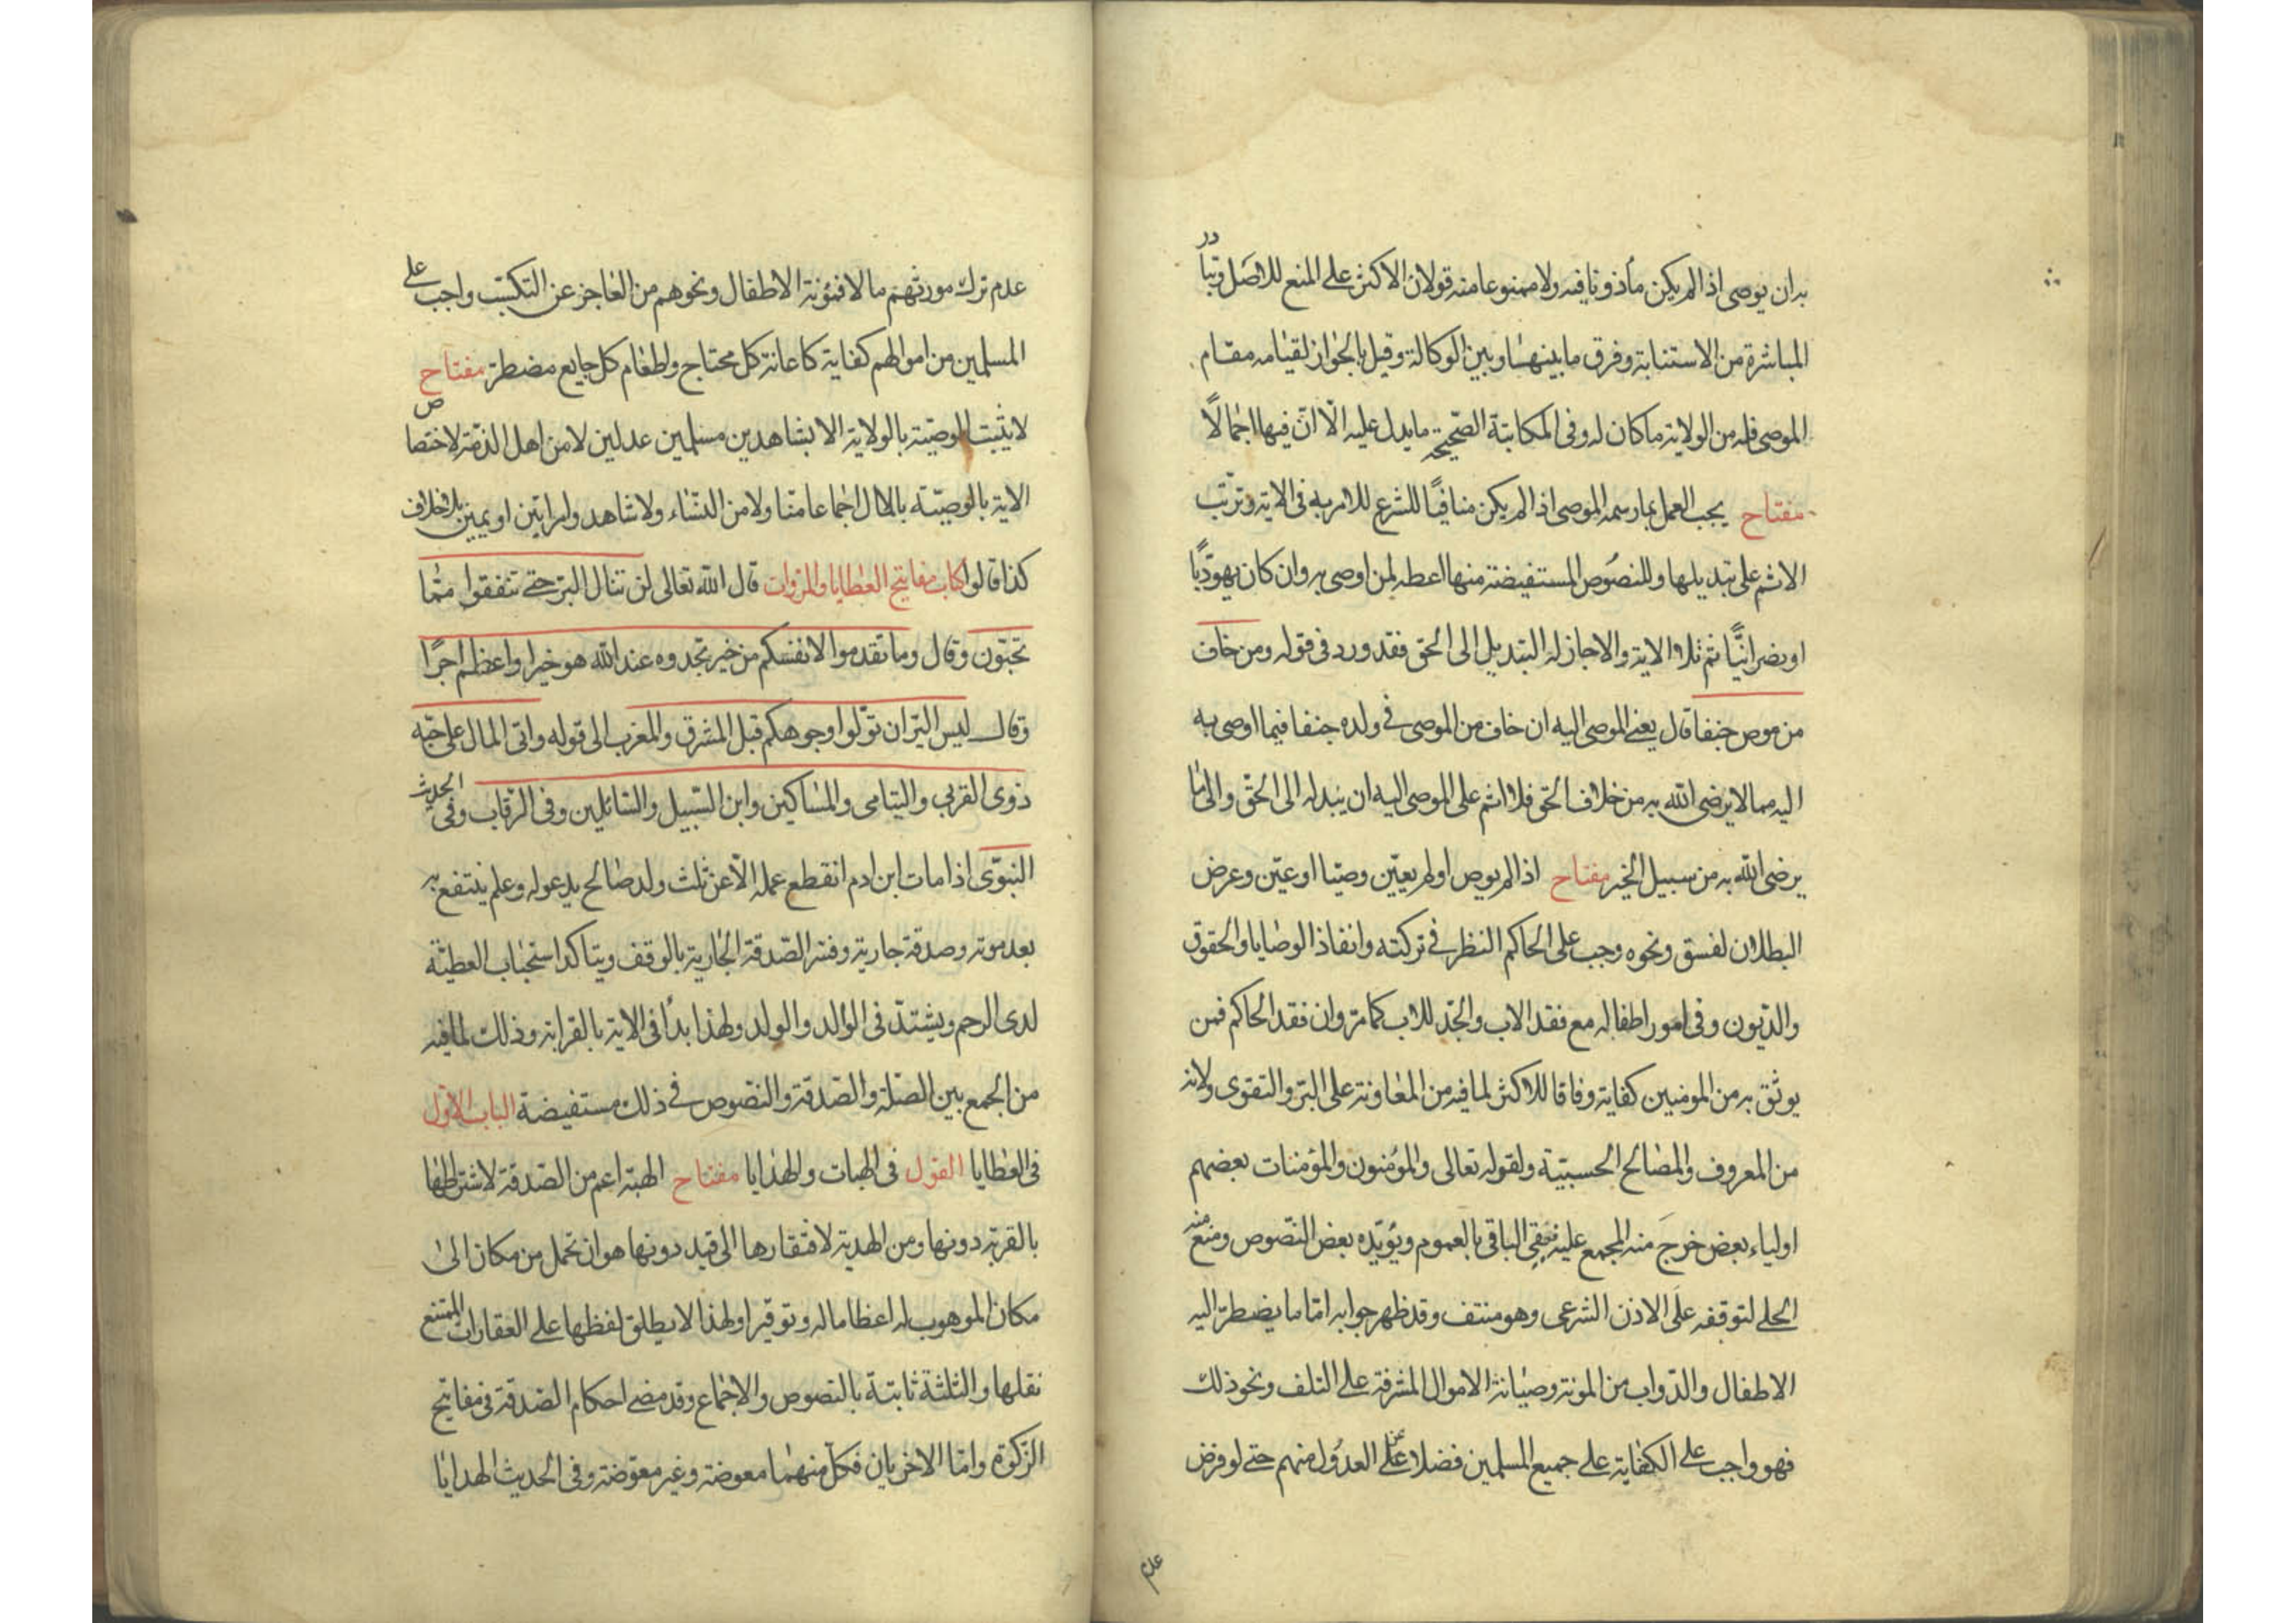 به ان يوصى اذا لم يكن مأذونا فيه ولا ممنوعا منه قولان الاكثر على المنع للاصل وتبادر
المباشرة من الاستنابة وفرق ما بينها وبين الوكالة وقيل بالجواز لقيامه مقام
الموصى فله من الولاية ما كان له وفى المكاتبة الصّحيحة ما يدل عليه الّا انّ فيها اجمالًا
مفتاح يجب العمل بما رسمه الموصى اذا لم يكن منافيًا للشرع للامر به فى الاية وترتّب
الاثم على تبديلها وللنصوص المستفيضة منها اعطه لمن اوصى به وان كان يهوديًّا
او نصرانيًّا ثم تلا الاية والا جاز له التبديل الى الحق فقد ورد فى قوله ومن خاف
من موص جنفا قال يعنى الموصى اليه ان خاف من الموصى فى ولده جنفا فيما اوصى به
اليه مما لا يرضى الله به من خلاف الحق فلا اثم على الموصى اليه ان يبدله الى الحق والى ما
يرضى الله به من سبيل الخير مفتاح اذا لم يوص او لم يعيّن وصيّا او عيّن وعرض
البطلان لفسق ونحوه وجب على الحاكم النظر فى تركته وانفاذ الوصايا والحقوق
والدّيون وفى امور اطفاله مع فقد الاب والجدّ للاب كما مرّ وان فقد الحاكم فمن
يوثق به من المومنين كفاية وفاقا للاكثر لما فيه من المعاونة على البرّ والتقوى ولانه
من المعروف والمصالح الحسبيّة ولقوله تعالى والمؤمنون والمؤمنات بعضهم
اولياء بعض خرج منه المجمع عليه فبقى الباقى بالعموم ويؤيّده بعض النّصوص ومنع منه
الحلى لتوقفه على الاذن الشرعى وهو منتف وقد ظهر جوابه امّا ما يضطرّ اليه
الاطفال والدّواب من المونة وصيانة الاموال المشرفة على التلف ونحو ذلك
فهو واجب على الكفاية على جميع المسلمين فضلا عن العدول منهم حتى لو فرض
عدم
عدم ترك مورثهم مالا فمؤنة الاطفال ونحوهم من العاجز عن التكسّب واجب على
المسلمين من اموالهم كفاية كاعانة كل محتاج واطعام كل جايع مضطر مفتاح
لا يثبت الوصيّة بالولاية الا بشاهدين مسلمين عدلين لا من اهل الذمّة لاختصاص
الاية بالوصيّة بالمال اجماعا منّا ولا من النّساء ولا شاهد وامراتين او يمين بلا خلاف
كذا قالوا كتاب مفاتيح العطايا والمروات قال الله تعالى لن تنال البر حتى تنفقوا ممّا
تحبّون وقال وما تقدموا لانفسكم من خير تجدوه عند الله هو خيرا واعظم اجرًا
وقال ليس البّر ان تولّوا وجوهكم قبل المشرق والمغرب الى قوله واتى المال على حبّه
ذوى القربى واليتامى والمساكين وابن السّبيل والسّائلين وفى الرّقاب وفى الحديث
النبوّى اذا مات ابن ادم انقطع عمله الّا عن ثلث ولد صالح يدعو له وعلم ينتفع به
بعد موته وصدقة جارية وفسّر الصّدقة الجارية بالوقف ويتاكد استحباب العطيّة
لدى الرحم ويشتدّ فى الوالد والولد ولهذا بدأ فى الاية بالقرابة وذلك لما فيه
من الجمع بين الصّلة والصّدقة والنّصوص فى ذلك مستفيضة الباب الاوّل
فى العطايا القول فى الهبات والهدايا مفتاح الهبة اعم من الصّدقة لاشتراطها
بالقربة دونها ومن الهدية لافتقارها الى قيد دونها هو ان تحمل من مكان الى
مكان الموهوب له اعظاما له وتوقيرا ولهذا لا يطلق لفظها على العقارات الممتنع
نقلها والثلثة ثابتة بالنصوص والاجماع وقد مضى احكام الصّدقة فى مفاتيح
الزّكوة وامّا الاخريان فكلّ منهما معوضة وغير معوّضة وفى الحديث الهدايا